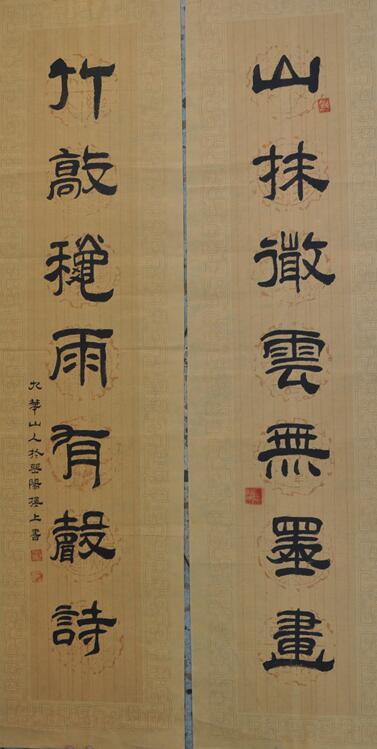 山抹微雲無墨畫
竹敲穐雨有聲詩
九華山人於陽上書